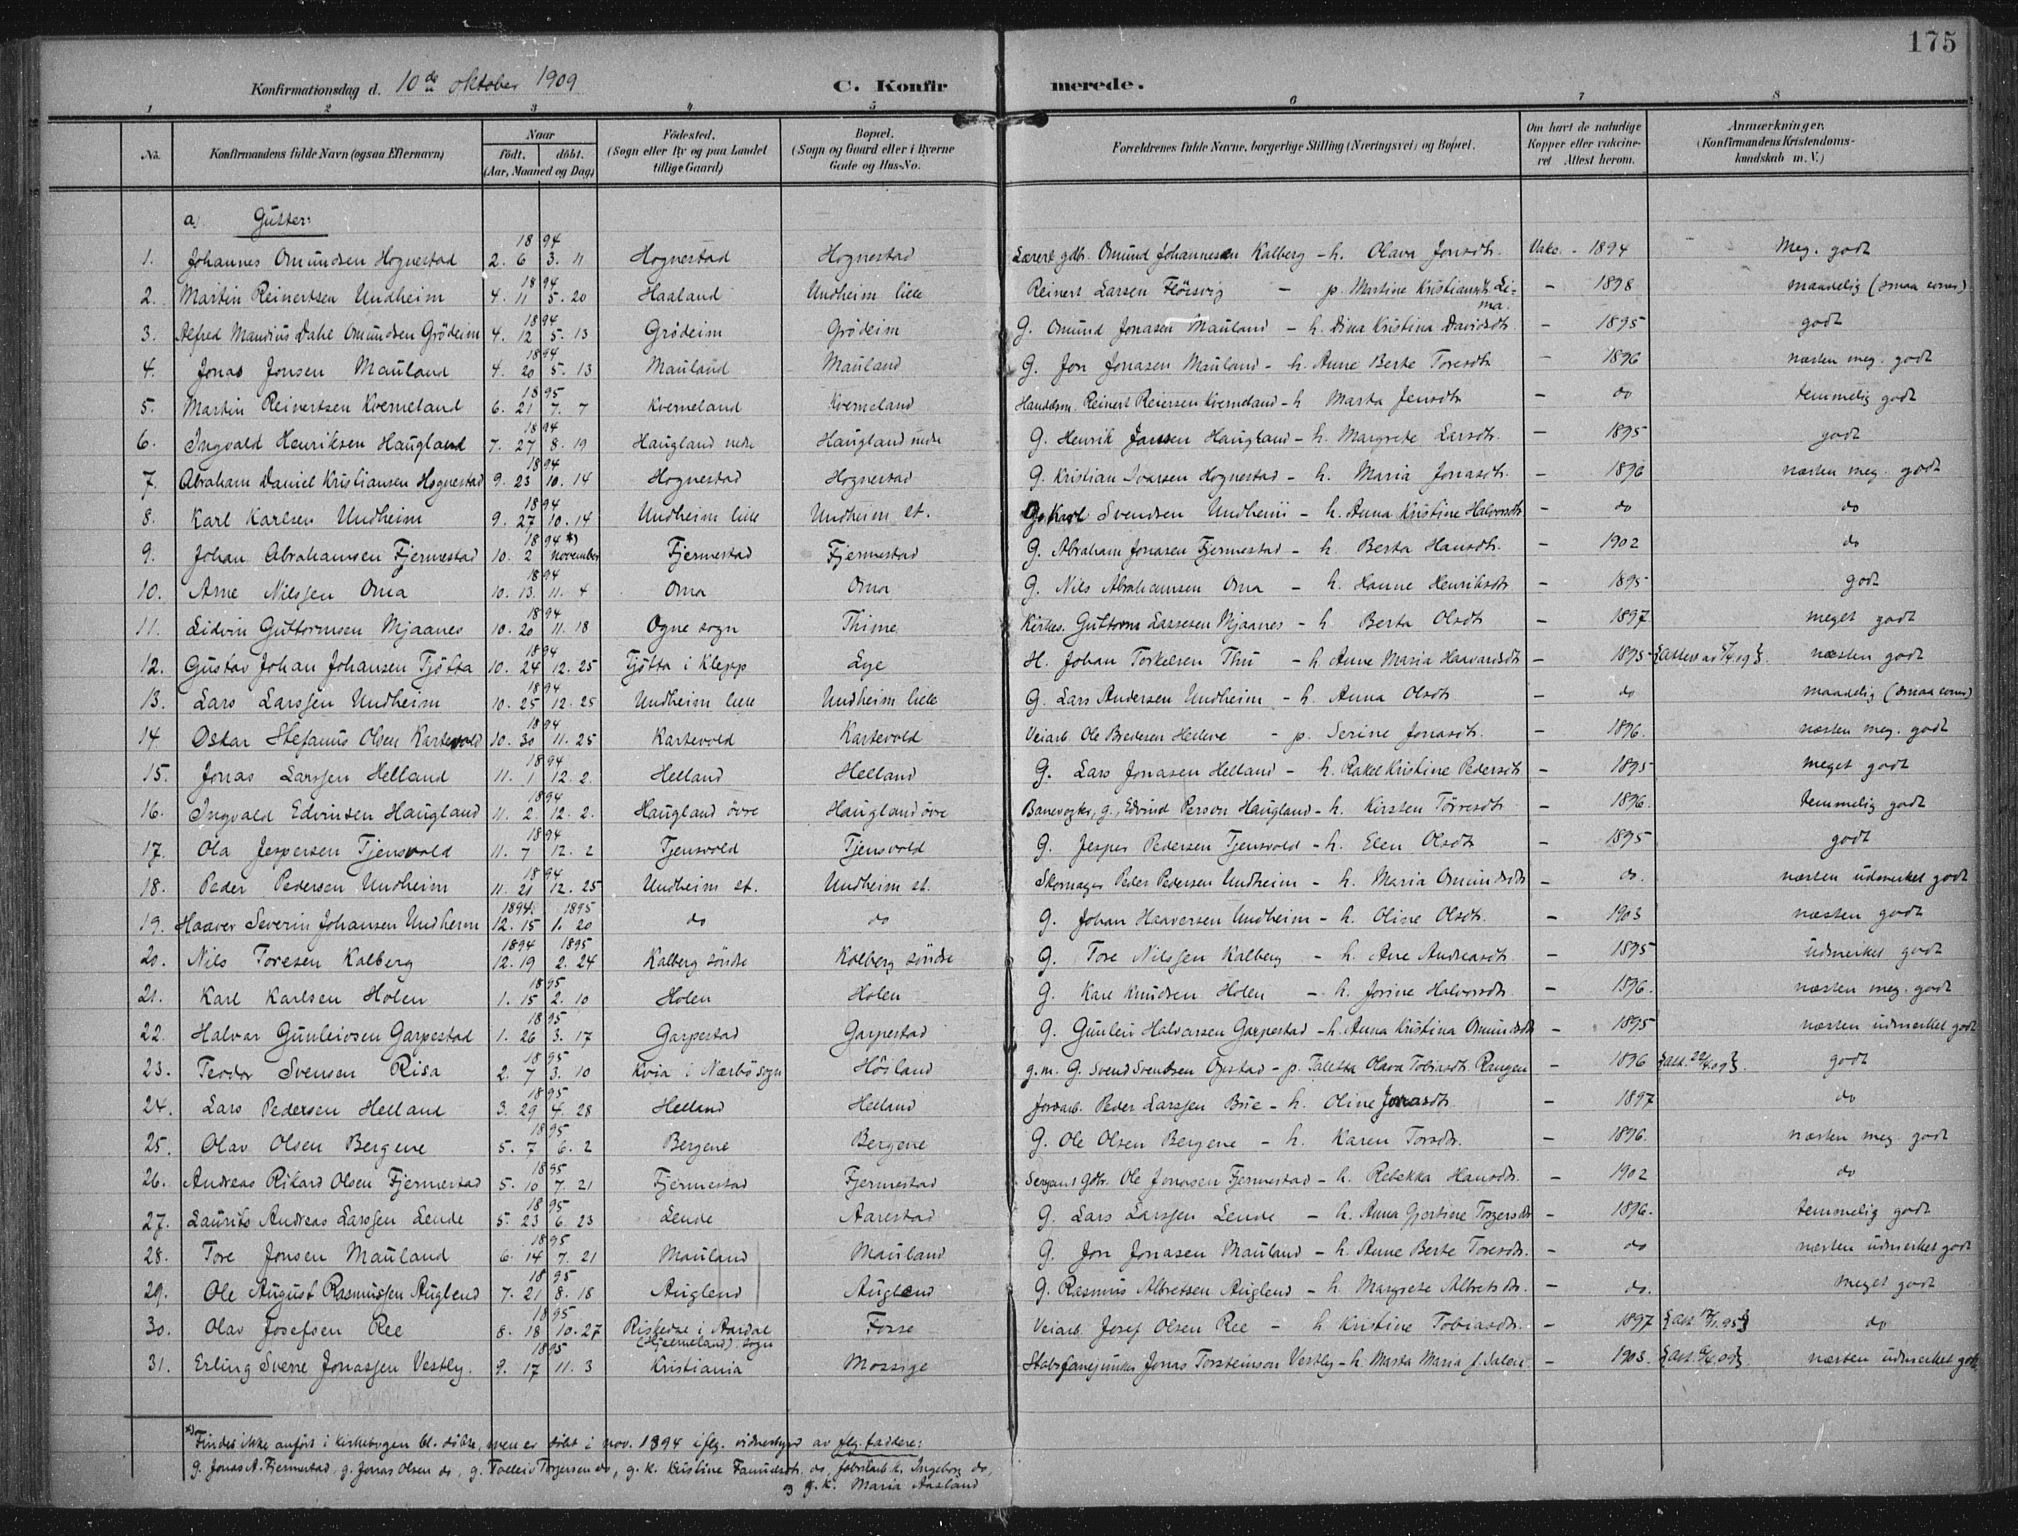 175
Konfirmationsdag d. 10de oktober 1909 C. Konfirmerede.
1 2 3 4 5 6 7 8
No. Konfirmandens fulde Navn (ogsaa Efternavn) Naar födt. döbt. (Aar, Maaned og Dag) Födested. (Sogn eller By og paa Landet tillige Gaard) Bopæl. (Sogn og Gaard eller i Byerne Gade og Hus-No. Forældrenes fulde Navne, borgerlige Stilling (Næringsvei) og Bopæl. Om havt de naturlige Kopper eller vakcineret Attest herom. Anmærkninger. (Konfirmandens Kristendomskundskab m. V.)
a) Gutter:
1. Johannes Omundsen Hognestad 1894 2. 6 3. 11 Hognestad Hognestad Lærer gdb. Omund Johannesen Kalberg - h. Olava Jonsdtr. Vakc. - 1894 Meg. godt
2. Martin Reinertsen Undheim 1894 4. 11 5. 20 Haaland Undheim lille Reinert Larsen - p. Martine Kristiansdtr. Lima. - 1898 maadelig (smaa evner)
3. Alfred Mandius Dahl Omundsen Grödeim 1894 4. 12 5. 13 Grödeim Grödeim G. Omund Jonasen Mauland - h. Dina Kristina Davidsdtr. - 1895 godt
4. Jonas Jonsen Mauland 1894 4. 20 5. 13 Mauland Mauland G. Jon Jonasen Mauland - h. Anne Berte Toresdtr. - 1896 næsten meg. godt
5. Martin Reinertsen Kverneland 1895 6. 21 7. 7 Kverneland Kverneland Handelsm. Reinert Reiersen Kverneland - h Marta Jensdtr. - do temmelig godt
6. Ingvald Henriksen Haugland 1894 7. 27 8. 19 Haugland nedr Haugland nedr G. Henrik Jansen Haugland - h. Margrete Larsdtr. - 1895 godt
7. Abraham Daniel Kristiansen Hognestad 1894 9. 23 10. 14 Hognestad Hognestad G. Kristian Ivarsen Hognestad - h. Maria Jonasdtr. - 1896 næsten meg. godt
8. Karl Karlsen Undheim 1894 9. 27 10. 14 Undheim lille Undheim st. G. Karl Svendsen Undheim - h. Anna Kristine Halvorsdtr. - do do
9. Johan Abrahamsen Fjermestad 1894 *) 10. 2 November Fjermestad Fjermestad G. Abraham Jonasen Fjermestad - h. Berta Hansdtr. - 1902 do
10. Arne Nilssen Oma 1894 10. 13. 11. 4 Oma Oma G. Nils Abrahamsen Oma - h. Hanne Henriksdtr. - 1895 godt
11. Lidvin Guttormsen Mjaanes 1894 10. 20 11. 18 Ogne sogn Thime Kirkes. Guttorm Lassesen Mjaanes - h Berta Olsdtr. - 1897 meget godt
12. Gustav Johan Johansen Tjötta 1894 10. 24 12. 25 Tjötta i Klepp Lye H. Johan Torkelsen Thu - h Anne Maria Haavardsdtr. - 1895 næsten godt
13. Lars Larssen Undheim 1894 10. 25 12. 25 Undheim lille Undheim lille G. Lars Andersen Undheim - h. Anna Olsdtr. - do maadelig (smaa evner)
14. Oskar Stefanus Olsen Kartevold 1894 10. 30 11. 25 Kartevold Kartevold Veiarb. Ole Bredesen - p. Serine Jonasdtr. - 1896. næsten meg. godt
15. Jonas Larssen Helland 1894 11. 1 12. 2. Helland Helland G. Lars Jonasen Helland - h. Rakel Kristine Pedersdtr. - 1895 meget godt
16. Ingvald Edvindsen Haugland 1894 11. 2. 12. 2. Haugland övre Haugland övre Banevogter, g., Edvind Person Haugland - h. Kirsten Törresdtr. - 1896. temmelig godt
17. Ola Jespersen Tjensvold 1894 11. 7 12. 2 Tjensvold Tjensvold G. Jesper Pedersen Tjensvold - h. Elen Olsdtr. - 1895 godt
18. Peder Pedersen Undheim 1894 11. 21 12. 25 Undheim st. Undheim st. Skomager Peder Pedersen Undheim - h. Maria Omundsdtr. - do. næsten udmerket godt
19. Haaver Severin Johansen Undheim 1894. 1895 12. 15 1. 20 do do G. Johan Haaversen Undheim - h. Oline Olsdtr. - 1903 næsten godt
20. Nils Toresen Kalberg 1894 1895 12. 19 2. 24 Kalberg söndre Kalberg söndre G. Tore Nilssen Kalberg - h. Ane Andreasdtr. - 1895 udmerket godt
21. Karl Karlsen Holen 1895 1. 15 2. 10 Holen Holen G. Karl Knudsen Holen - h. Josine Halvorsdtr. - 1896. næsten meg. godt
22. Halvar Gunleivsen Garpestad 1895 1. 26 3. 17 Garpestad Garpestad G. Gunleiv Halvarsen Garpestad - h. Anna Kristina Omundsdtr. - 1895 næsten udmerket godt
23. Teodor Svensen Risa 1895 2. 7 3. 10 Kvia i Nærbö sogn Höiland g.m. G. Svend Svendsen Opstad - p. Taletta Olava Tobiasdtr. Rangen - 1896 {att. 22/4.09}. godt
24. Lars Pedersen Helland 1895 3. 29 4. 28 Helland Helland Jordarb. Peder Larssen Bue - h. Oline Jonasdtr. - 1897 do
25. Olav Olsen Bergene 1895 5. 7 6. 2 Bergene Bergene G. Ole Olsen Bergene - h. Karen Torsdtr. - 1896. næsten meg. godt
26. Andreas Rikard Olsen Fjermestad 1895 5. 10 7. 21 Fjermestad Fjermestad Sergant gdbr. Ole Jonasen Fjermestad - h. Rebekka Hansdtr. - 1902 do
27. Laurits Andreas Larssen Lende 1895 5. 23 6. 23 Lende Aarestad G. Lars Larssen Lende - h. Anna Gjertine Torgersdtr. - 1896. temmelig godt
28. Tore Jonsen Mauland 1895 6. 14 7. 21 Mauland Mauland G. Jon Jonasen Mauland - h. Anne Berte Toresdtr. - do næsten udmerket godt
29. Ole August Rasmussen Auglend 1895 7. 21 8. 18 Auglend Auglend G. Rasmus Albretsen Auglend - h. Margrete Albretsdtr. - do. meget godt
30. Olav Josefsen Ree 1895 8. 18 10. 27 Riskedal i Aardal (Hjelmeland) sogn Fosse Veiarb. Josef Olsen Ree - h Kristine Tobiasdtr. - 1897 do
31. Erling Sverre Jonassen Vestly. 1895 9. 17 11. 3 Kristiania Mossige Stabsfanejunker Jonas Torsteinson Vestly - h. Marta Maria f. - 1903. næsten udmerket godt
*) Findes ikke anfört i kirkebogen bl. döbte, men er döbt i nov. 1894 iflg. vidnesbyrd av flg. faddere:
g. Jonas A. Fjermestad, g. Jonas Olsen do, g. Tolleiv Torgersen do, g. k. Kristine do, k. Ingeborg do,
og g.k. Maria Aasland